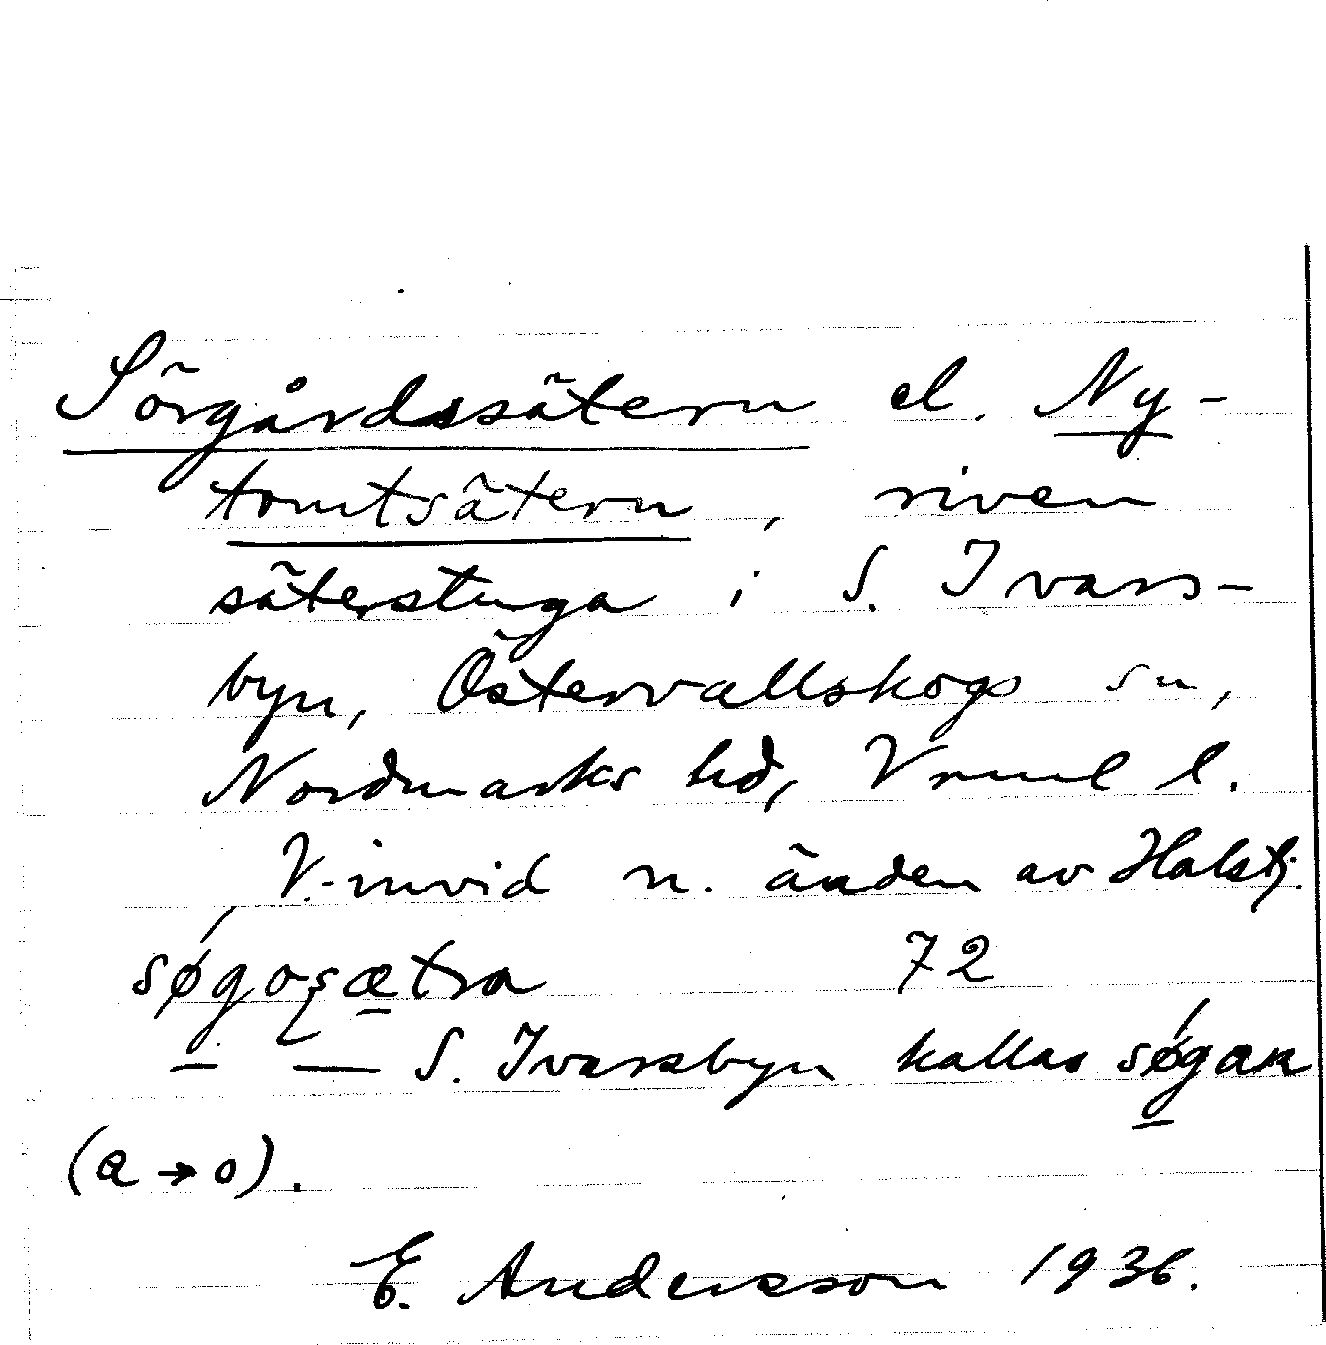 Sörgårdssätern el. Ny-
tomtsätern, riven
säterstuga i S. Ivars-
byn, Östervallskogs sn,
Nordmarks hd, Vrml l.
V. invid n. änden av Halstj.
søgoşætra 72
— — S. Ivarsbyn kallas søgan
(a → o).
E. Andersson 1936.